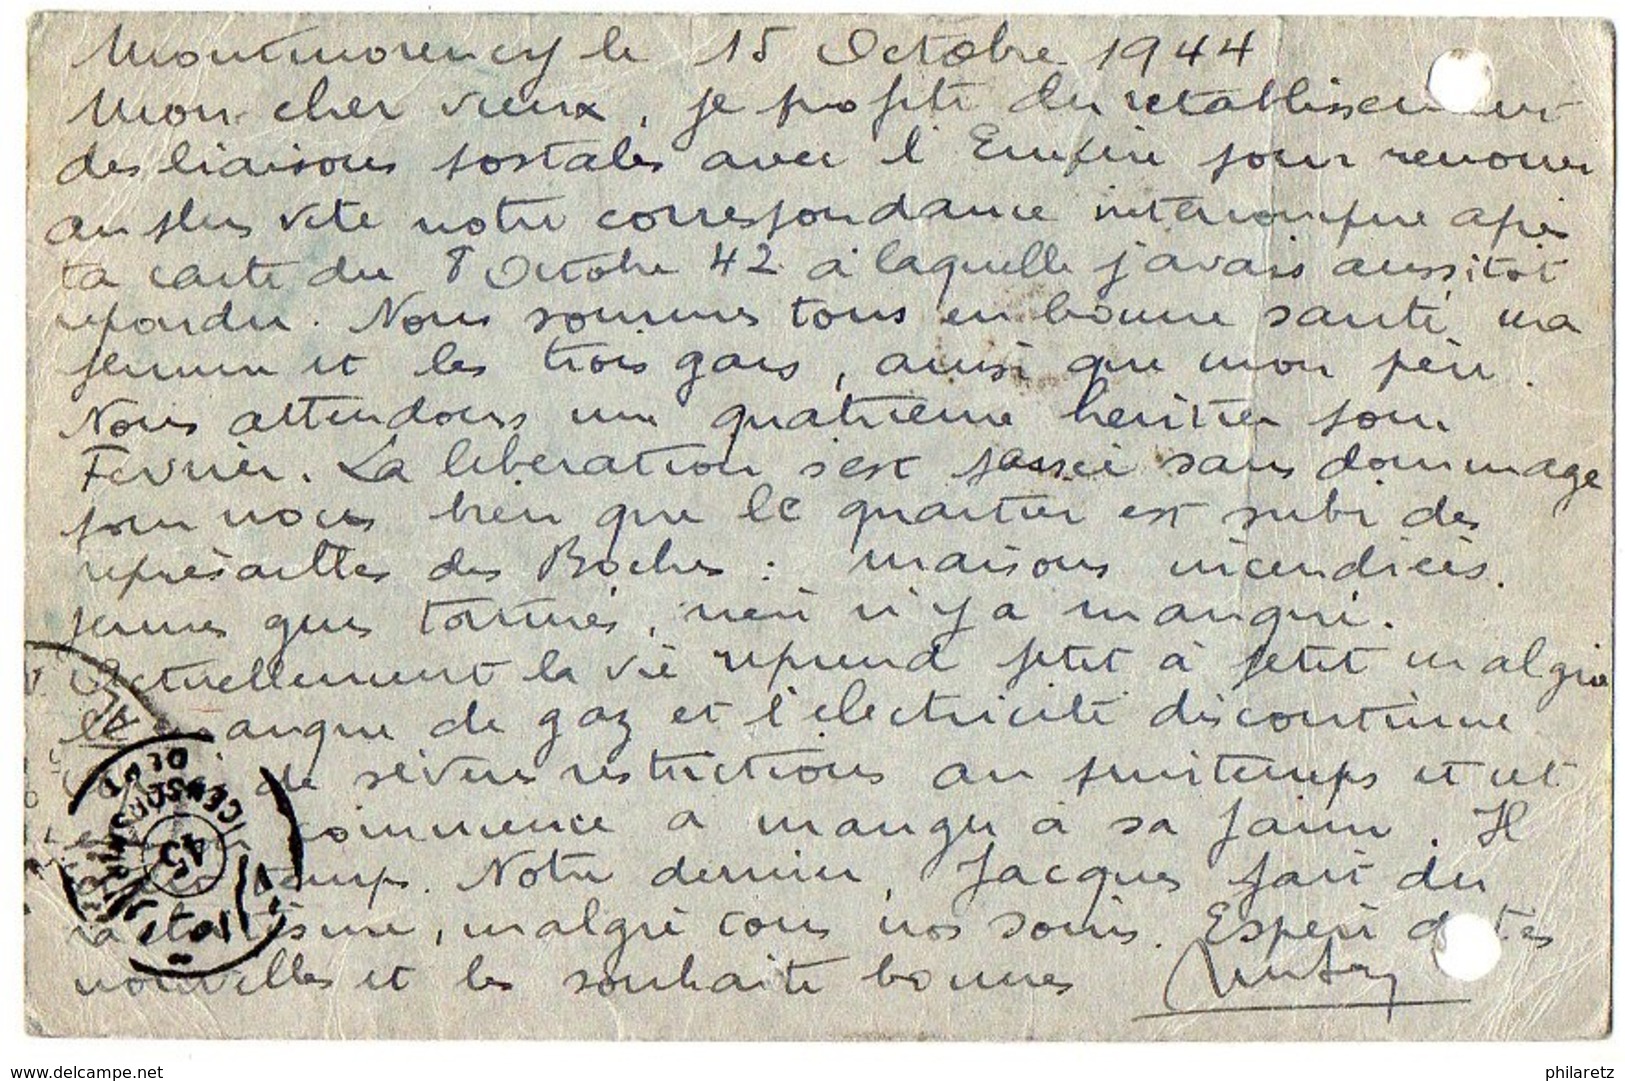 Montmorency le 15 Octobre 1944
Mon cher vieux, je profite du retablissement
des liaisons postales avec l'Empire pour renouer
au plus vite notre correspondance interrompue apres
ta carte du 8 Octobre 42 à laquelle j'avais aussitot
repondu. Nous sommes tous en bonne santé, ma
femme et les trois gars, ainsi que mon père.
Nous attendons un quatrieme heritier pour
Fevrier. La liberation s'est passée sans dommage
pour nous bien que le quartier est subi des
represailles des Boches : maisons incendiées.
jeunes gens torturés, rien n'y a manqué.
Actuellement la vie reprend petit à petit malgré
le manque de gaz et l'electricité discontinue
de sévères restrictions au printemps et cet
commence a manger à sa faim. Il
temps. Notre dernier, Jacques fait du
rachitisme, malgré tous nos soins. Espère de tes
nouvelles et les souhaite bonnes